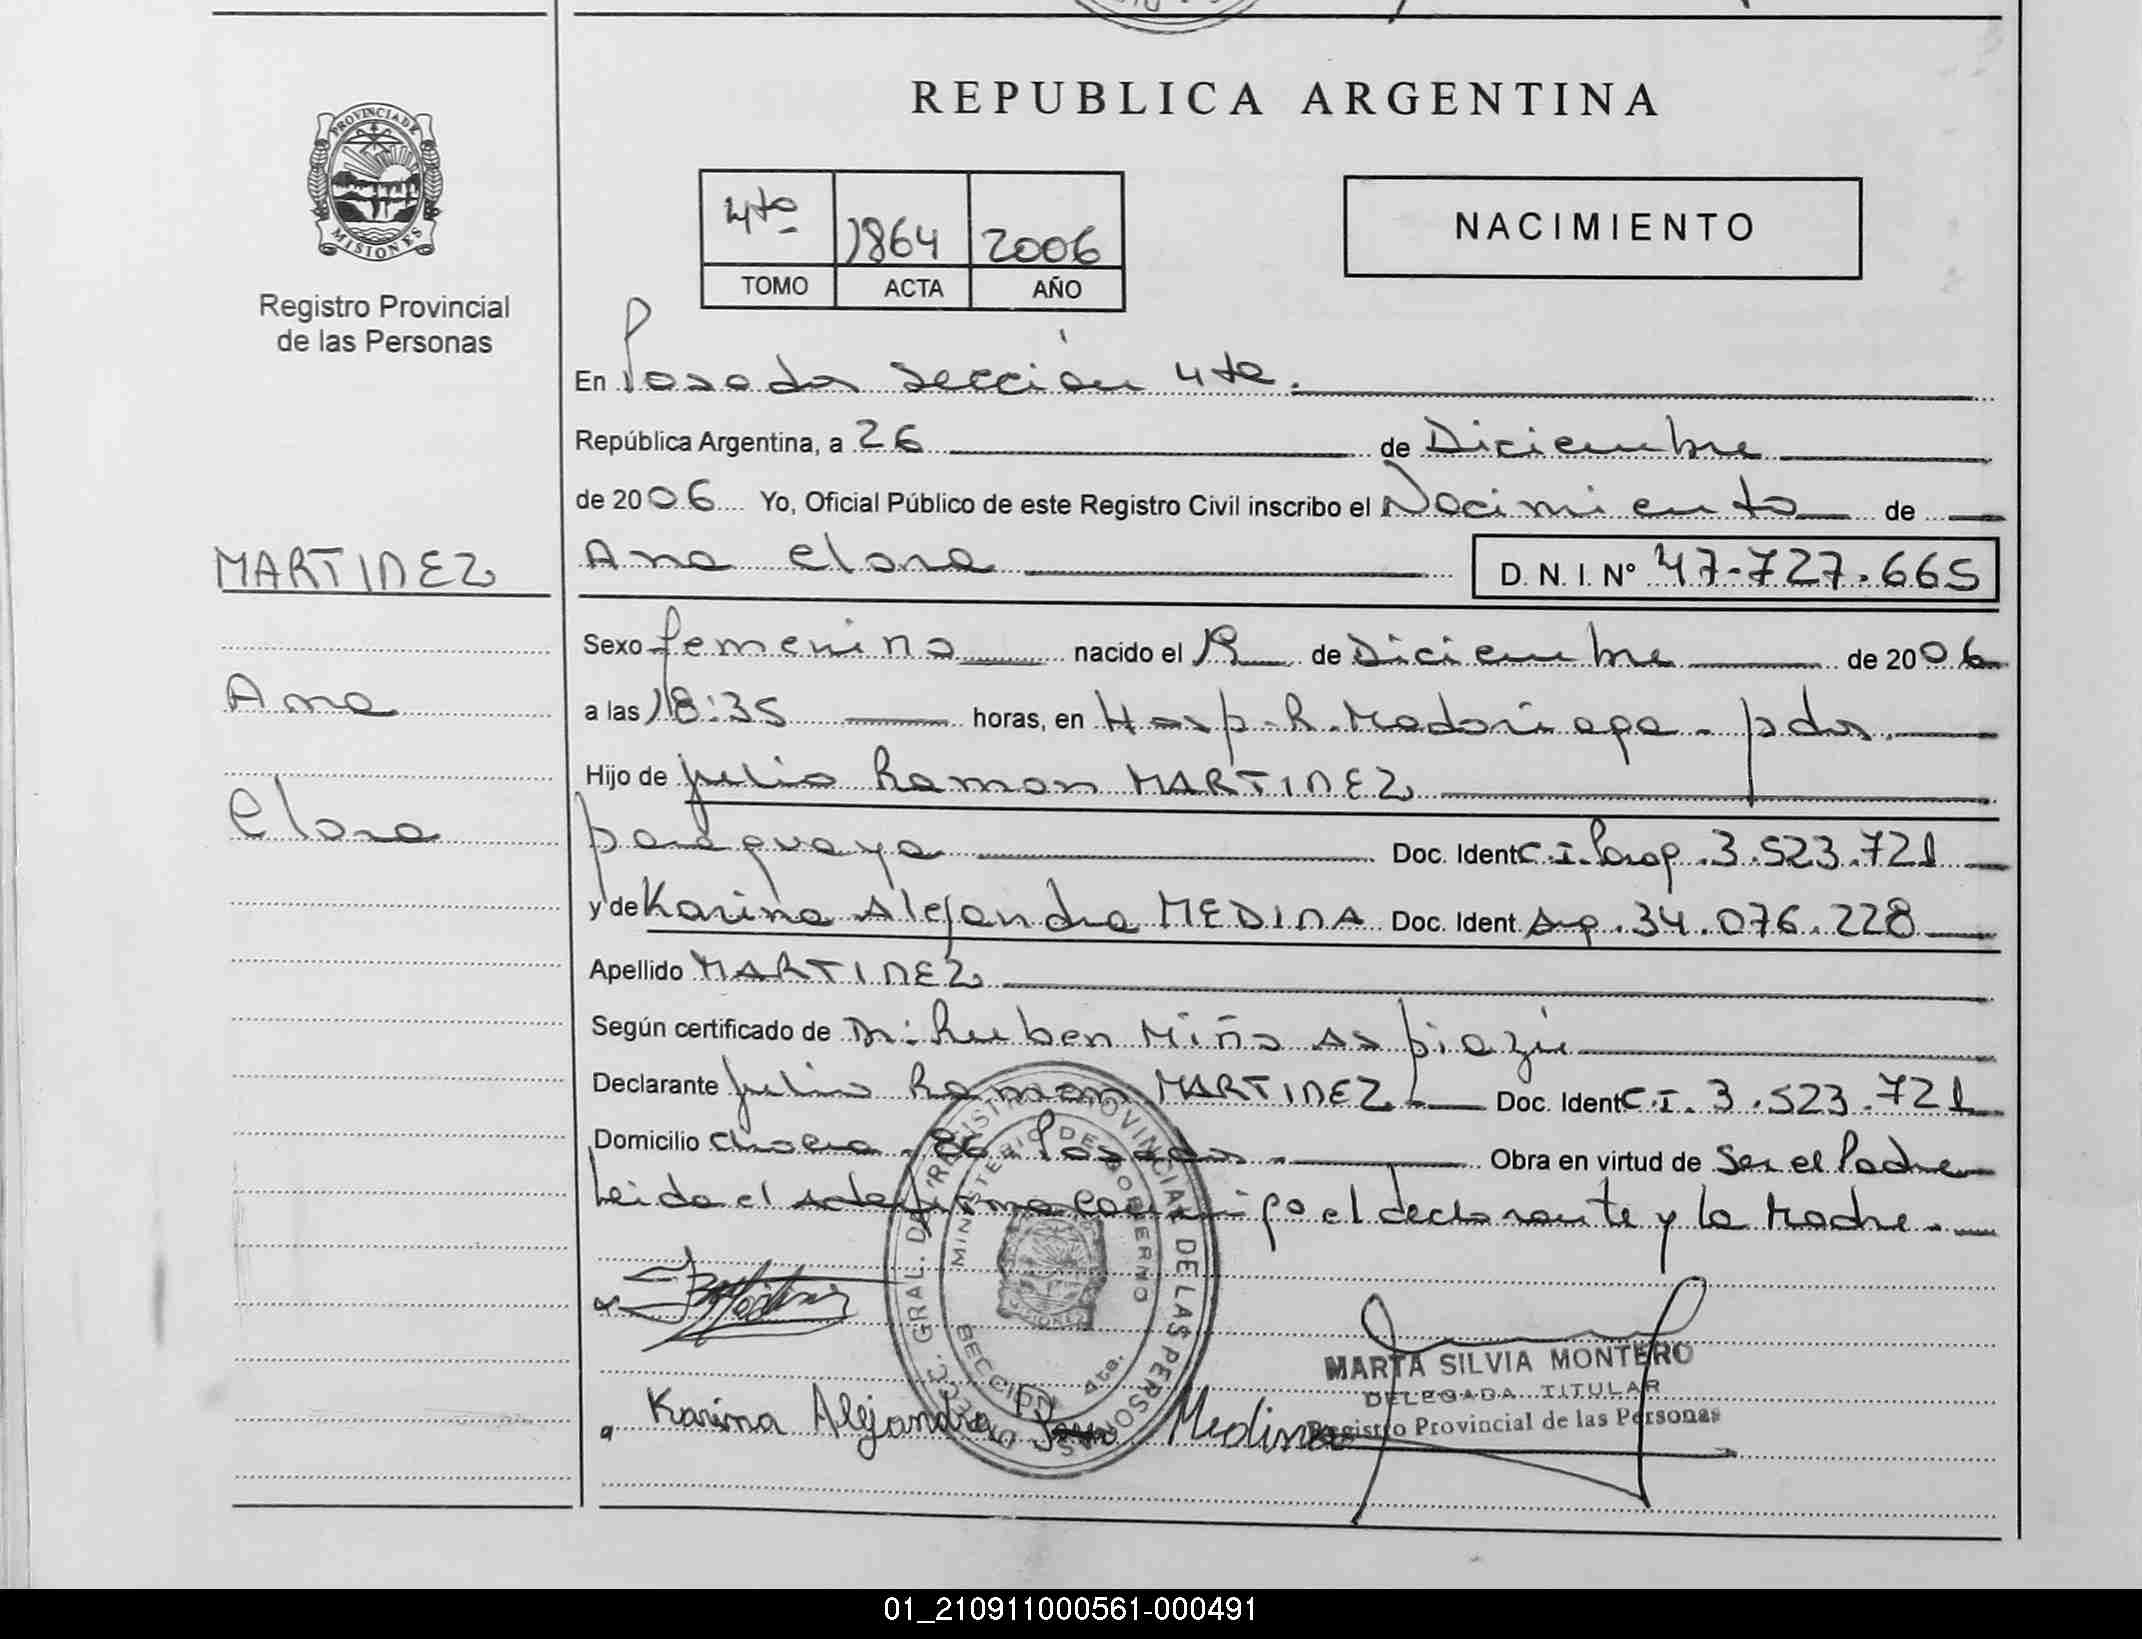 REPUBLICA ARGENTINA
PROVINCIA DE MISIONES
Registro Provincial
de las Personas
4to 1864 2006
TOMO ACTA AÑO
NACIMIENTO
En Posadas Sección 4ta.
República Argentina, a 26 de Diciembre
de 2006 Yo, Oficial Público de este Registro Civil inscribo el Nacimiento de
MARTINEZ
Ana Clara D.N.I. Nº 47.727.665
Sexo femenino nacido el de Diciembre de 2006
Ana
a las 18:35 horas, en Hosp. R. Madariaga - pdas.
Hijo de Julio Ramon MARTINEZ
Clara
paraguaya Doc. Ident C.I. Parag. 3.523.721
y de Karina Alejandra MEDINA Doc. Ident. Arg. 34.076.228
Apellido MARTINEZ
Según certificado de Dr. Ruben Miño Aspiazú
Declarante Julio Ramon MARTINEZ Doc. Ident C.I. 3.523.721
Domicilio Chacra 86 Posadas Obra en virtud de Ser el Padre
Leida el acta firma conmigo el declarante y la Madre.
DIRECC. GRAL. DEL REGISTRO PROVINCIAL DE LAS PERSONAS
MINISTERIO DE GOBIERNO
SECCION 4ta.
MARTA SILVIA MONTERO
DELEGADA TITULAR
Registro Provincial de las Personas
Karina Alejandra Medina
01_210911000561-000491